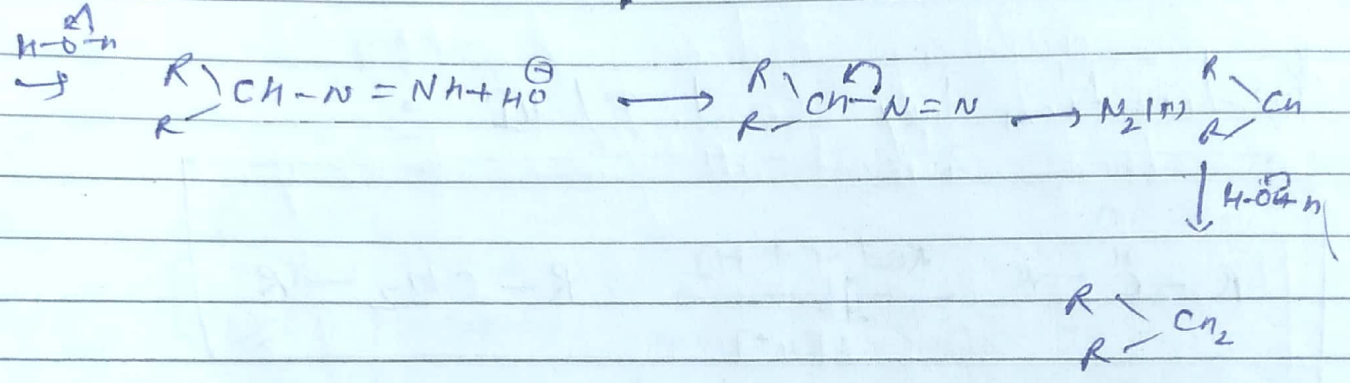 H-O-H
→ R R CH-N=NH + HO⊖ → R R CH-N=N → N₂(↑) R R CH
↓ H-O-H
R R CH₂